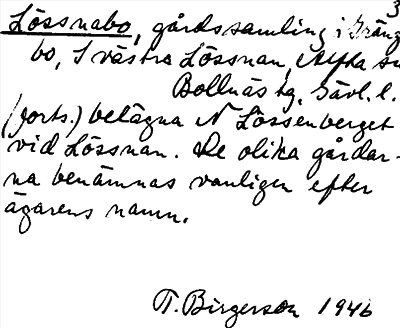 3
Lössnabo, gårdssamling i Gräng
bo, S västra Lössnan, Alfta sn
Bollnäs tg, Gävl. l.
(forts.) belägna N Lössenberget
vid Lössnan. De olika gårdar-
na benämnas vanligen efter
ägarens namn.
T. Birgerson 1946